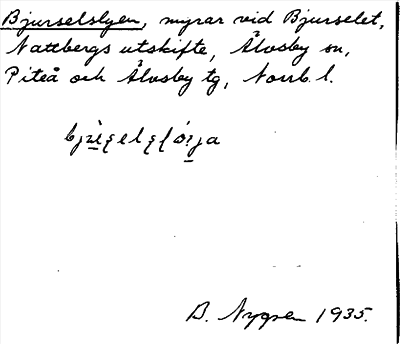 Bjurselslyen, myrar vid Bjurselet,
Nattbergs utskifte, Älvsby sn,
Piteå och Älvsby tg, Norrb. l.
B. Nygren 1935.